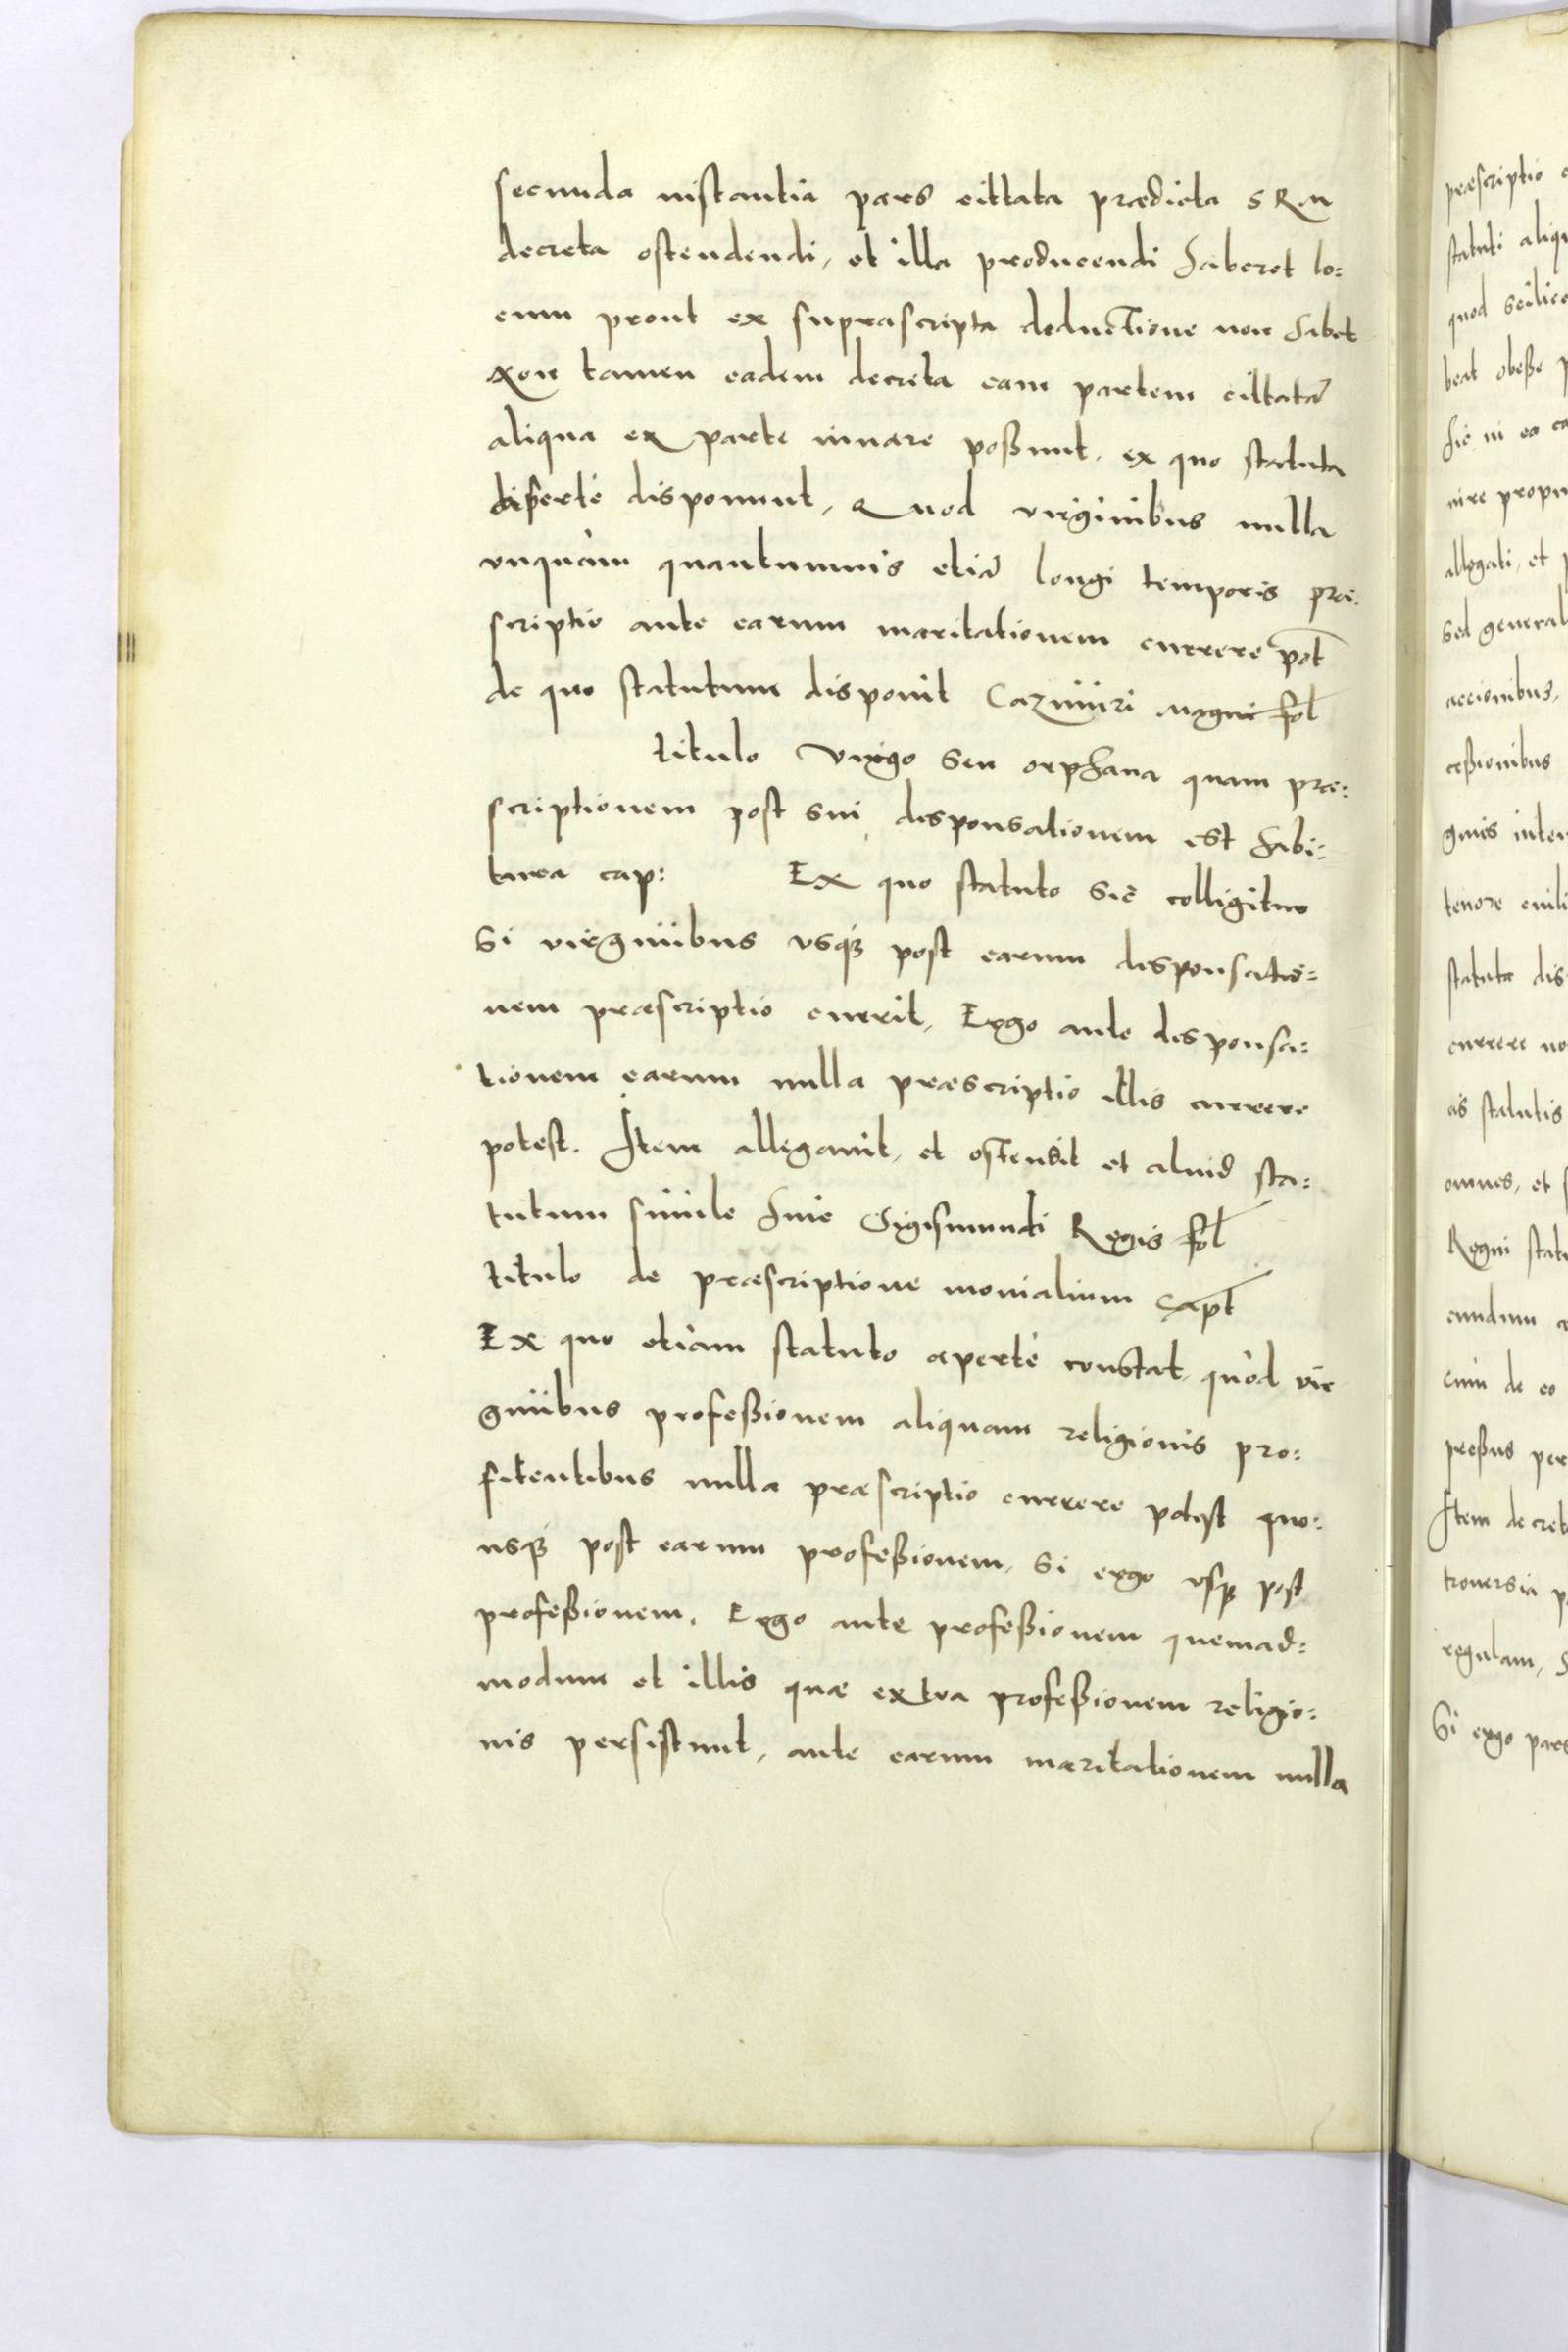 secunda instantia pars cittata prædicta S R M
decreta ostendendi, et illa producendi haberet lo:
cum prout ex suprascripta deductione non habet
Non tamen eadem decreta eam partem cittatã
aliqua ex parte iuuare poßunt, ex quo statuta
disponunt, Quod virginibus nulla
vnquàm quantumuis etiã longi temporis præ:
scriptio ante earum maritationem currere pot̃
de quo statutum disponit Cazimiri Magni fol
titulo Virgo seu orphana quam præ:
scriptionem post sui desponsationem est habi:
tura cap: Ex quo statuto sic colligitur
Si virginibus vsqȝ post earum desponsatio:
nem præscriptio currit, Ergo ante desponsa:
tionem earum nulla præscriptio illis currere
potest. Item allegauit, et ostendit et aliud sta:
tutum simile huic Sigismundi Regis fol
titulo de præscriptione monialium Capt̃
Ex quo etiam statuto apertè constat, quòd vir
ginibus profeßionem aliquam religionis pro:
fitentibus nulla præscriptio currere potest quo:
usqȝ post earum profeßionem, Si ergo vsqȝ post
profeßionem, Ergo ante profeßionem quemad:
modum et illis quæ extra profeßionem religio:
nis persistunt, ante earum maritationem nulla
præscriptio
statuti aliqu
quod scilice
beat obeße p
hic in ea ca
iure propri
allegati, et p
sed general
accionibus,
ceßionibus
tenore ciuili
statuta dis
currere no
as statutis
omnes, et
Regni statu
cum de eo
preßus per
Item decret
trouersia p
regulam,
Si ergo pars